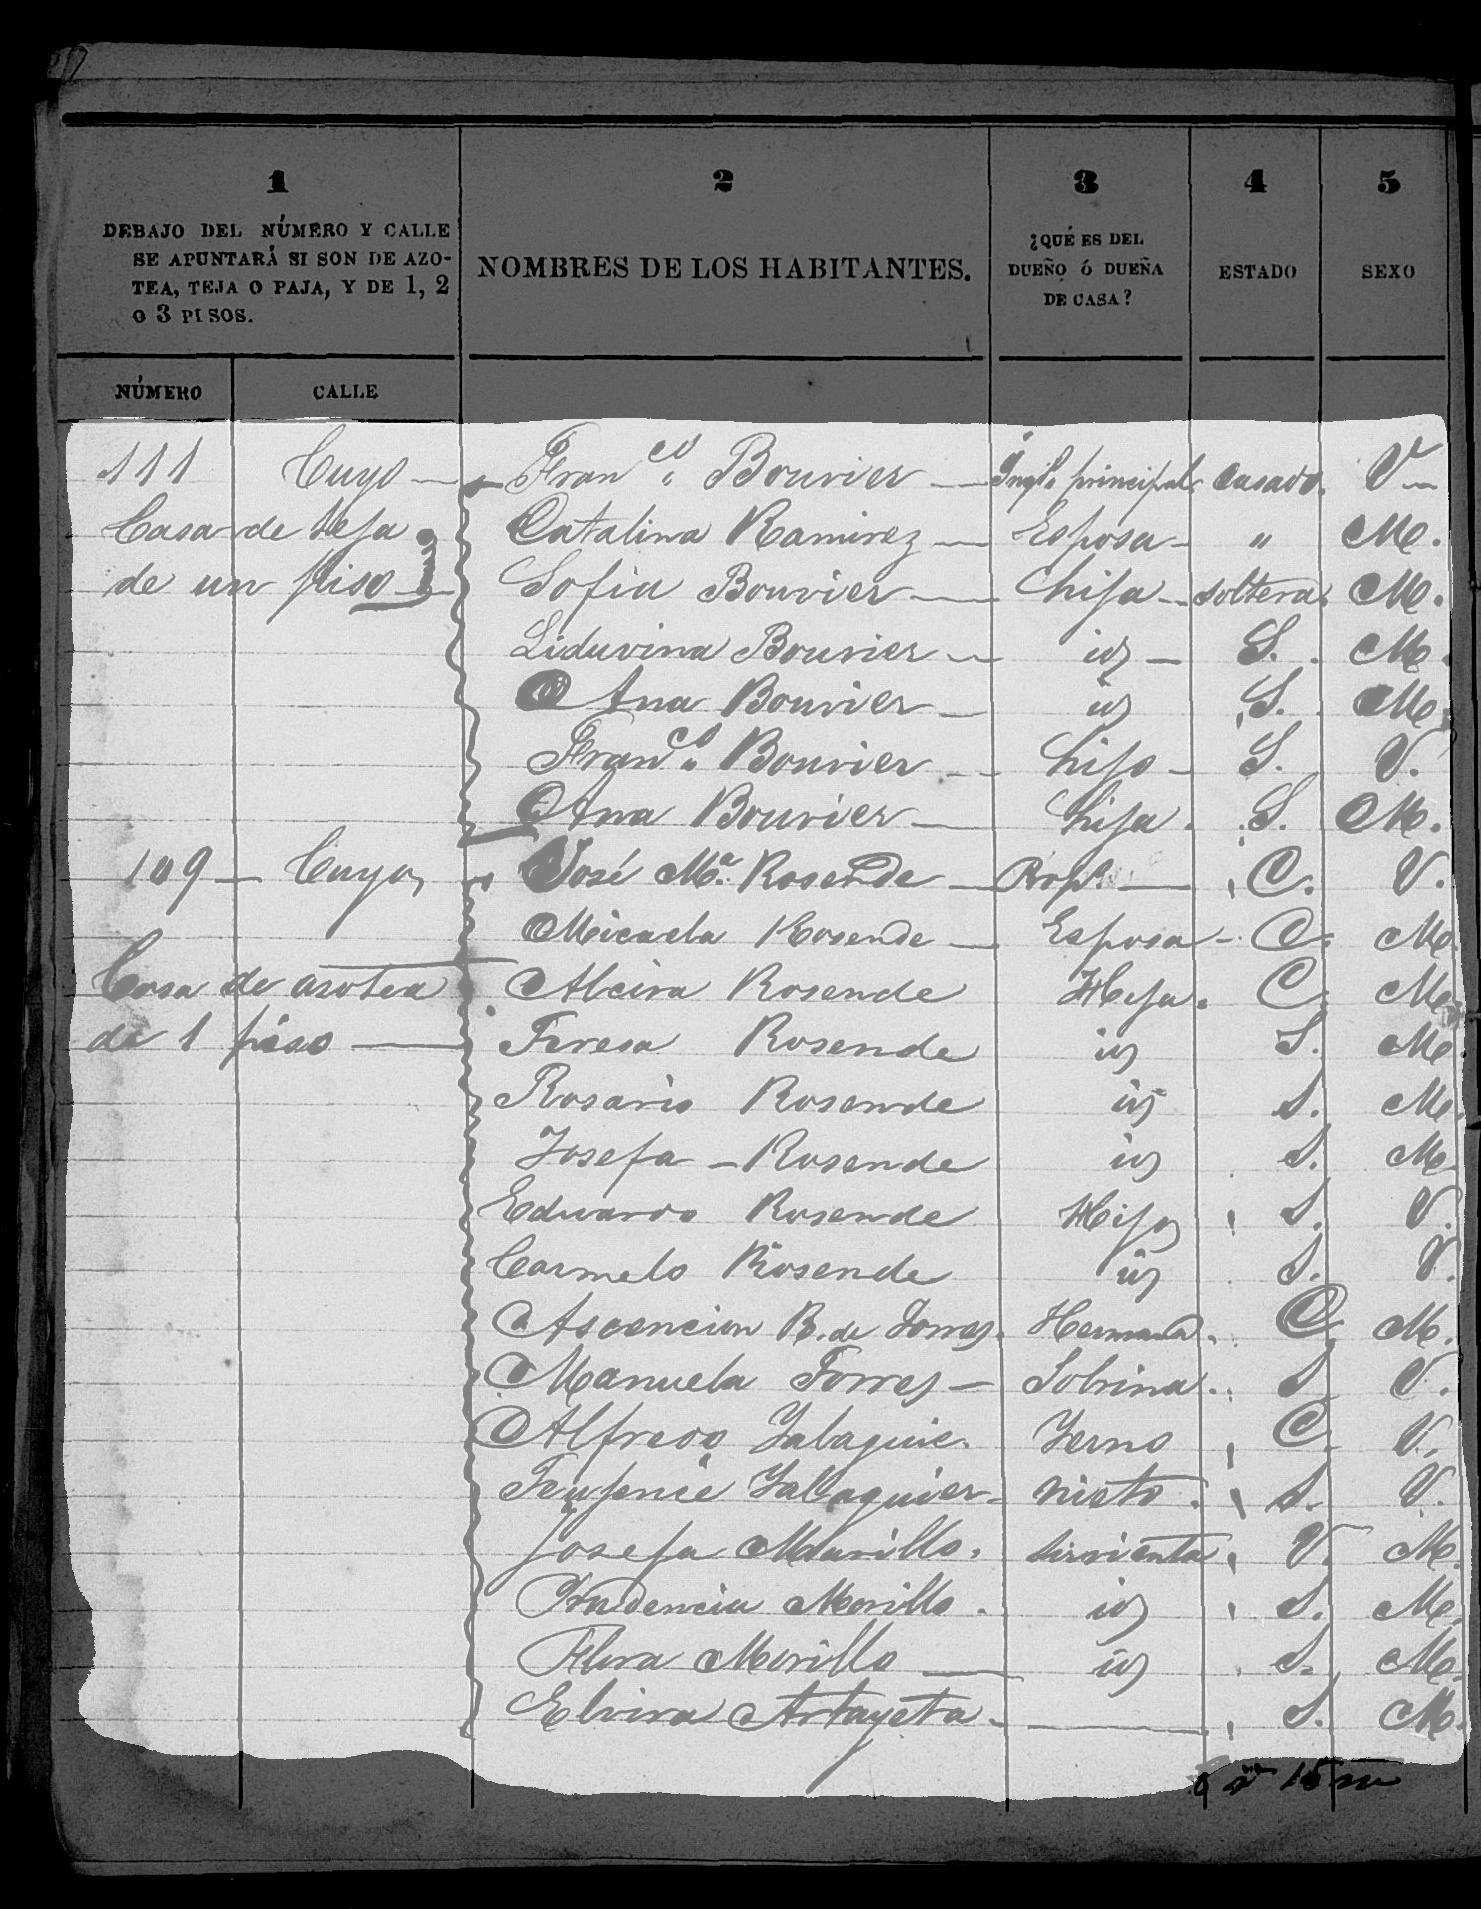 1
DEBAJO DEL NÚMERO Y CALLE
SE APUNTARÁ SI SON DE AZO-
TEA, TEJA O PAJA, Y DE 1, 2
O 3 PISOS.
2
NOMBRES DE LOS HABITANTES.
3
¿QUÉ ES DEL
DUEÑO Ó DUEÑA
DE CASA?
4
ESTADO
5
SEXO
NÚMERO CALLE
111 Cuyo — Fran.co Bouvier — principal casado. V —
Casa de teja Catalina Ramirez — Esposa - " M.
de un piso — Sofia Bouvier — hija - soltera. M.
Liduvina Bouvier — id — S. M.
Ana Bouvier — id S. M.
Fran.co Bouvier — hijo - S. V.
Ana Bouvier — hija. S. M.
109 — Cuyo, José Ma. Rosende — Prop. — C. V.
Micaela Rosende — Esposa - C. M.
Casa de azotea Alcira Rosende Hija. C. M.
de 1 piso — Teresa Rosende id S. M.
Rosario Rosende id S. M.
Josefa - Rosende id S. M.
Eduardo Rosende Hijo S. V.
Carmelo Rosende id S. V.
Ascencion R. de Torres. Hermana. C. M.
Manuela Torres — Sobrina. S. V.
Alfredo Jalaguie. Yerno C. V.
Jalaguier — nieto. S. V.
Josefa Murillo. sirvienta. V. M.
Prudencia Morillo. id S. M.
Flora Morillo — id S. M.
Elvira Artayeta. — S. M.